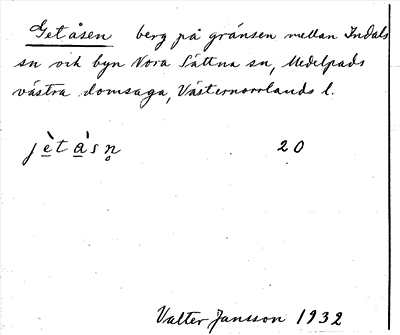 Getåsen berg på gränsen mellan Indals
sn och byn Nora Sättna sn, Medelpads
västra domsaga, Västernorrlands l.
jètàsn̥ 20
Valter Jansson 1932